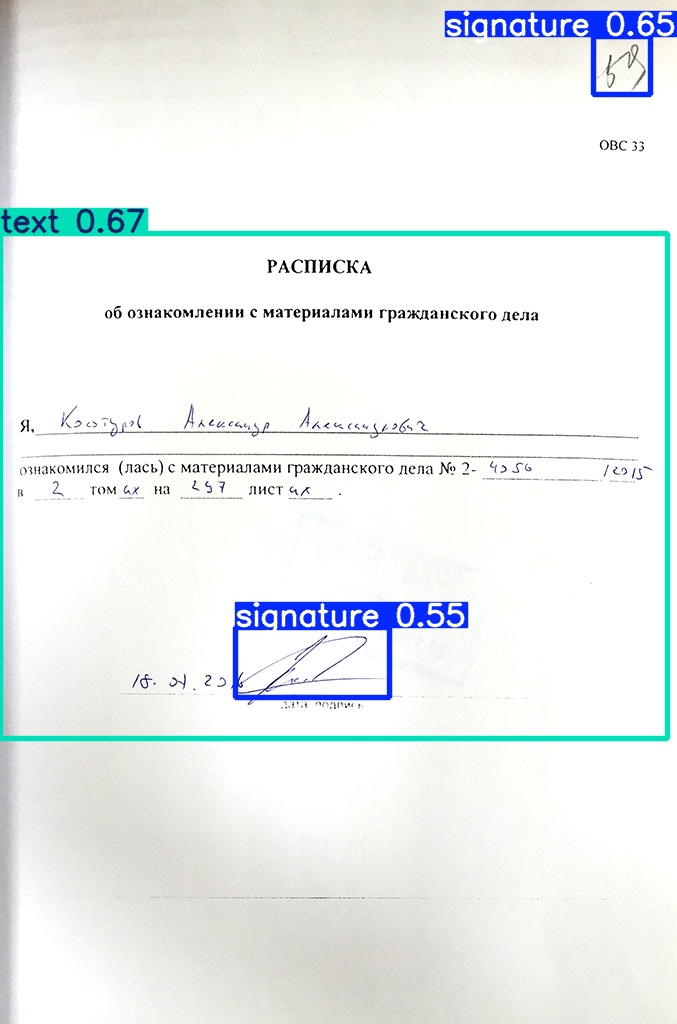 signature 0.65
59
ОВС 33
text 0.67
РАСПИСКА
об ознакомлении с материалами гражданского дела
Я, Александр Александрович
ознакомился (лась) с материалами гражданского дела № 2- 4056 /2015
в 2 том ах на 297 лист ах .
signature 0.55
18. 01. 2016
дата подпись